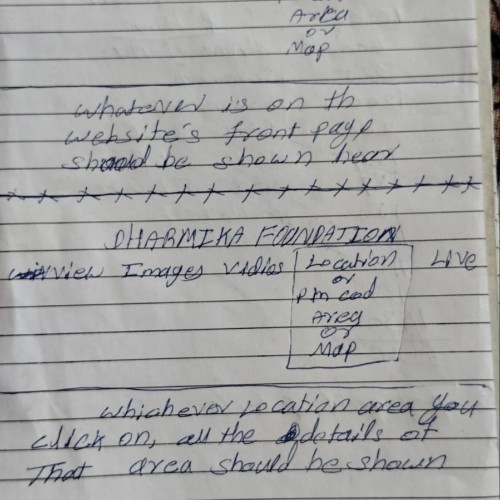 Area
or
Map
whatever is on th
website's front page
should be shown hear
DHARMIKA FOUNDATION
view Images vidios Location Live
or
Pin cod
Area
or
Map
whichever Location area you
click on, all the details of
That area should be shown